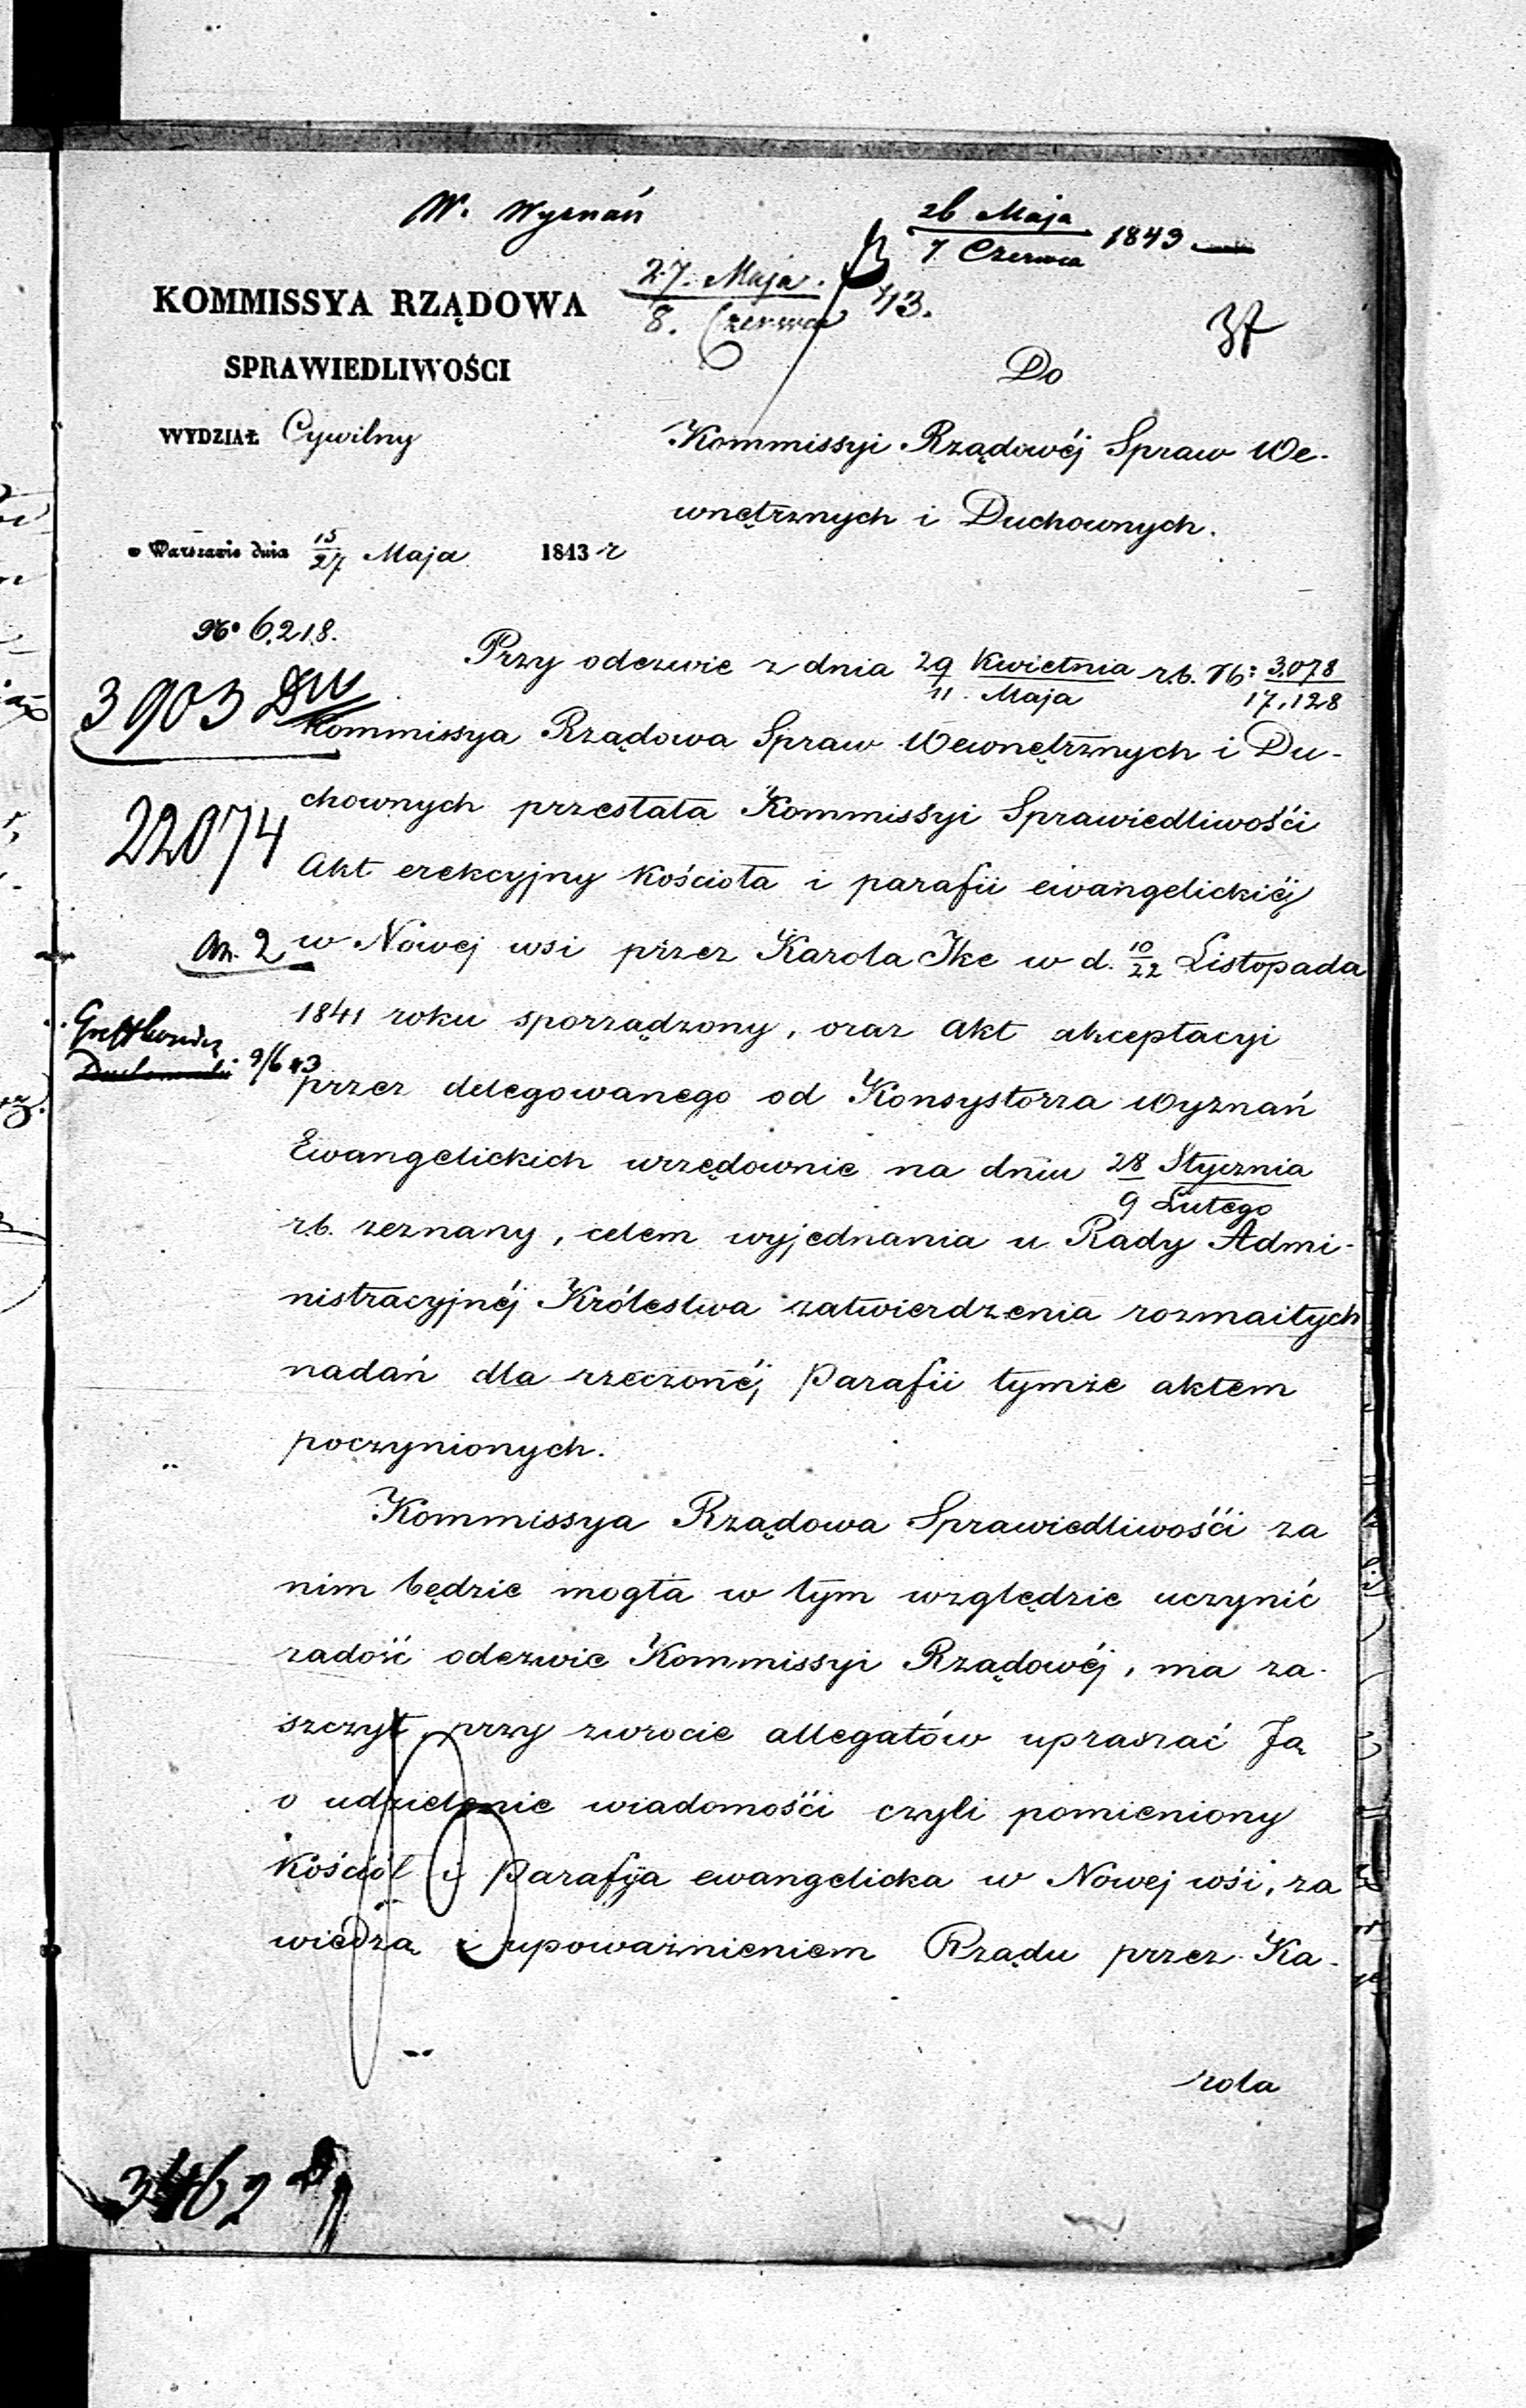 W. Wyznań
26 Maja
7 Czerwca 1843
27. Maja.
8. Czerwca 43.
37
KOMMISSYA RZĄDOWA
SPRAWIEDLIWOŚCI
WYDZIAŁ Cywilny
w Warszawie dnia 15/27 Maja 1843 r
No 6,218.
3903 DW
22074
An. 2
9/6 43
Do
Kommissyi Rządowéj Spraw We-
wnętrznych i Duchownych.
Przy odezwie z dnia 29 Kwietnia/11 Maja r.b. No: 3,078/17,128
Kommissya Rządowa Spraw Wewnętrznych i Du-
chownych przesłała Kommissyi Sprawiedliwości
Akt erekcyjny Kościoła i parafii ewangelickiéj
w Nowej wsi przez Karola Ike w d. 10/22 Listopada
1841 roku sporządzony, oraz akt akceptacyi
przez delegowanego od Konsystorza Wyznań
Ewangelickich urzędownie na dniu 28 Stycznia/9 Lutego
r.b. zeznany, celem wyjednania u Rady Admi-
nistracyjnéj Królestwa zatwierdzenia rozmaitych
nadań dla rzeczonéj Parafii tymże aktem
poczynionych.
Kommissya Rządowa Sprawiedliwości za
nim będzie mogła w tym względzie uczynić
zadość odezwie Kommissyi Rządowéj, ma za-
szczyt przy zwrocie allegatów upraszać Ją
o udzielenie wiadomości czyli pomieniony
Kościół i Parafija ewangelicka w Nowej wsi, za
wiedzą i upoważnieniem Rządu przez Ka-
rola
3462